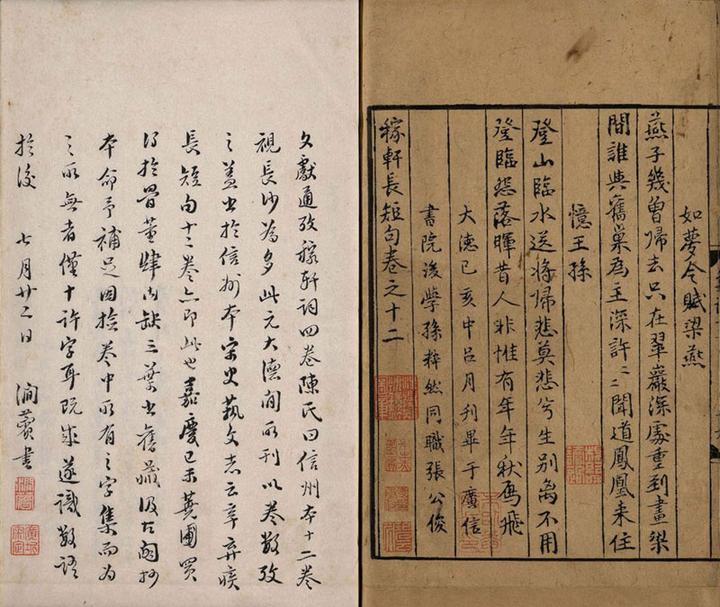 如夢令賦梁燕
燕子幾曾歸去只在翠巖深處重到畫梁
間誰與舊巢為主深許〻〻聞道鳳凰来住
憶王孫
登山臨水送將歸悲莫悲兮生別離不用
登臨怨落暉昔人非惟有年年秋鴈飛
大德己亥中呂月刊畢于廣信
書院後學孫粹然同職張公俊
稼軒長短句卷之十二
文獻通攷稼軒詞四卷陳氏曰信州本十二卷
視長沙為多此元大德間所刊以卷數攷
之盖出於信州本宋史藝文志云辛棄疾
長短句十二卷亦即此也嘉慶己未蕘圃買
得於骨董肆內缺三葉出舊藏汲古閣抄
本命予補足因撿卷中所有之字集而為
之所無者僅十許字耳既成遂識數語
於後 七月廿二日 澗薲書